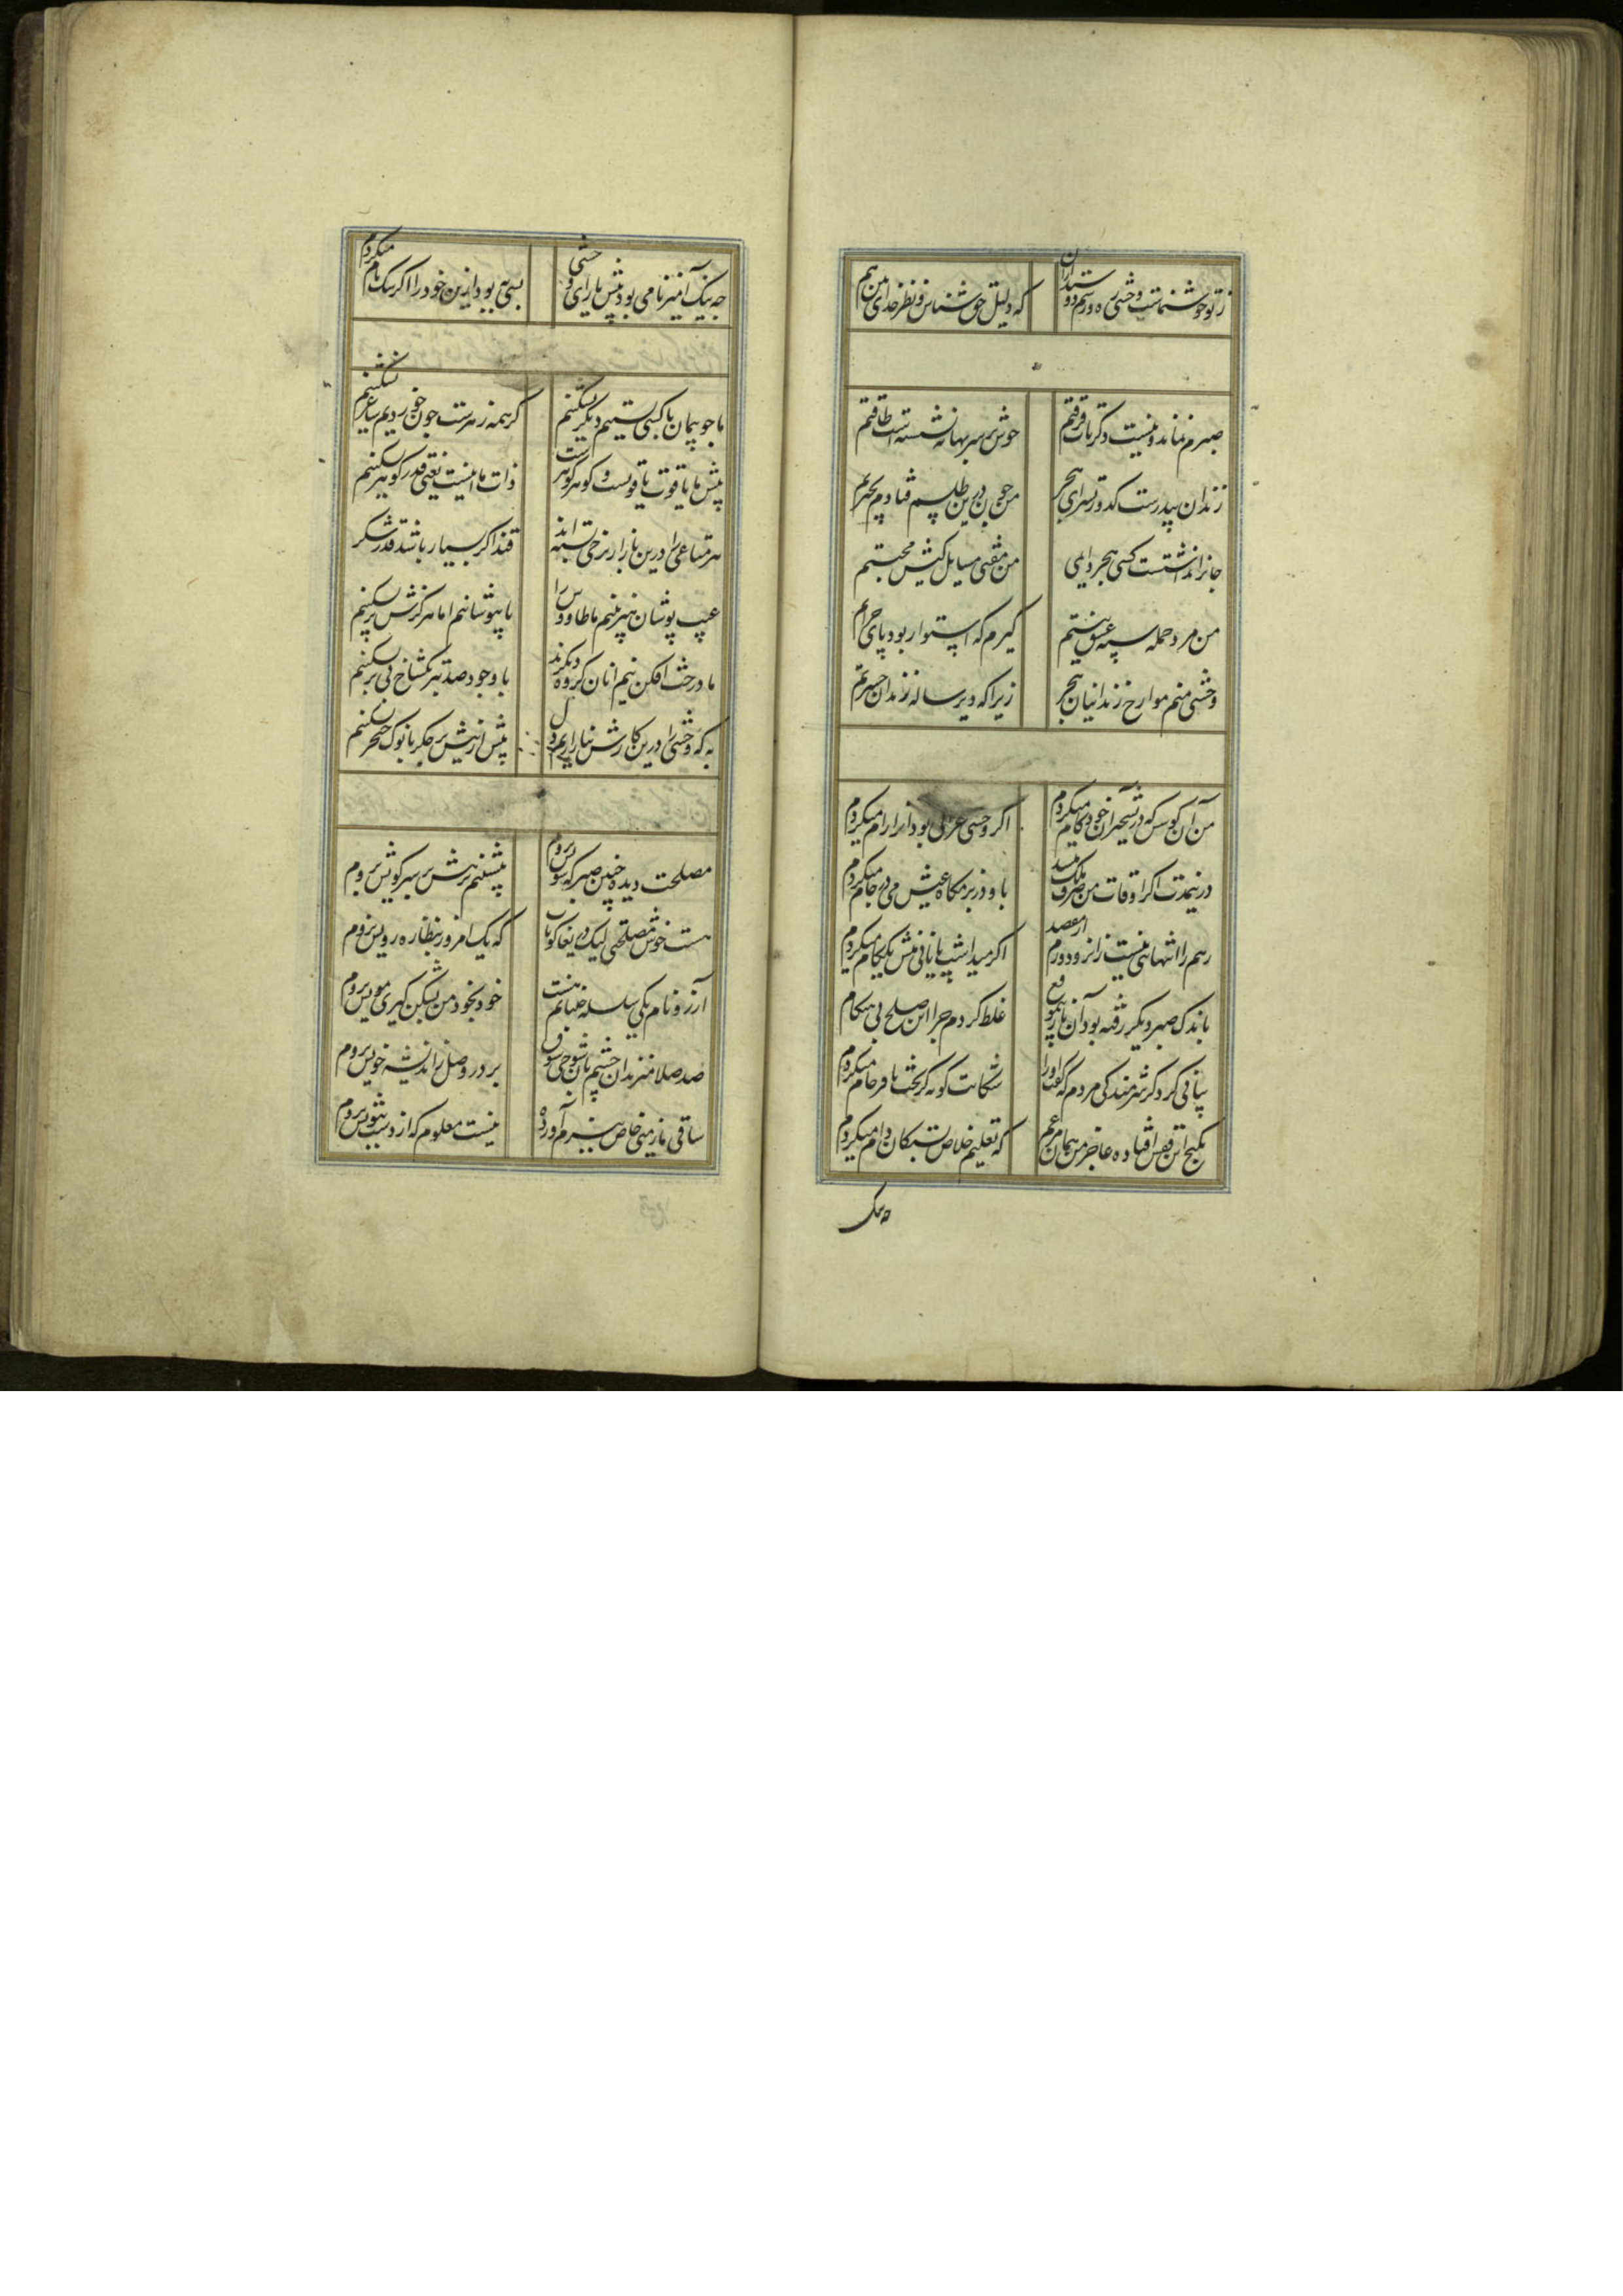 ز تو خوشنماست وحشی ره و رسم دوستداران که دلیل حق شناس و نظر خدای بین هم
صبرم نماند و نیست دگر تاب فرقتم خوش بر سر بهانه نشستست طاقتم
زندان بیدرست کدورتسرای هجر من چون درین طلسم فتادم بحیرتم
جانرا نداشتست کسی هجر دایمی من مفتی مسایل کیش محبتم
من مرد حمله سپه عشق نیستم گیرم که استوار بود پای جرأتم
وحشی منم مورخ زندانیان هجر زیرا که دیر ساله زندان حسرتم
من آن کوسش که در تسخیر آن خودکام میکردم اگر وحشی غزالی بود او را رام میکردم
درین مدت اگر اوقات من صرف ملک میشد باو در بزمگاه عیش می در جام میکردم
رهم را انتهایی نیست زانرو دورم از مقصد اگر میداشت پایانی منش یک گام میکردم
باندک صبر دیگر رفته بود آن ناز بموقع غلط کردم چرا این صلح بی هنگام
پیامی کرد کز شرمندگی مردم که گفت او را شکایت گونه کز بخت نافرجام میکردم
بکنج این قفس افتاده عاجز من همان مرغم که تعلیم خلاص بستگان دام میکردم
چه نیک
چه نیک آمیز نامی بود پیش یار ای وحشی بسی به بود ازین خود را اگر نیکنام میکردم
ما چو پیمان با کسی بستیم دیگر نشکنیم گر همه زهرست چون خوردیم ساغر نشکنیم
پیش ما یاقوت یاقوتست و گوهر گوهرست دأب ما اینست یعنی قدر گوهر نشکنیم
هر متاعی را درین بازار نرخی بسته اند قند اگر بسیار باشد قدر شکر
عیب پوشان هنر بینیم ما طاووس را پا بپوشانیم اما هرگزش پر نشکنیم
ما درخت افکن نه ایم آنان گروه دیگرند با وجود صد تبر یک شاخ بی بر نشکنیم
به که وحشی را درین کارش نیازاریم دل بیش ازین بر جگر تا نوک خنجر نشکنیم
مصلحت دیده چنین صبر که سویش نروم ننشینم برهش بر سر کویش نروم
هست خوش مصلحتی لیک دریغا کو تاب که یک امروز بنظاره رویش نروم
آرزو نام یکی سلسله جنبانم هست خود بخود من بشکن گیری مویش نروم
صد صلا میزند آن چشم باین شوخی شوق بر در وصل ز اندیشه خویش نروم
ساقی ما ز می خاص ببزم آورده نیست معلوم که از دست سبویش نروم